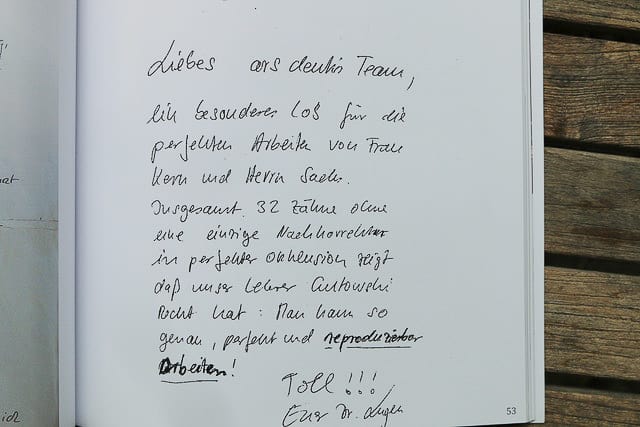 Liebes ars dentis Team,
ein besonderes Lob für die
perfekten Arbeiten von Frau
Kern und Herrn Sachs.
Insgesamt 32 Zähne ohne
eine einzige Nachkorrektur
in perfekter Okklusion zeigt
daß unser Lehrer Gutowski
Recht hat: Man kann so
genau, perfekt und reproduzierbar
Arbeiten!
Toll !!!
Euer Dr.
53